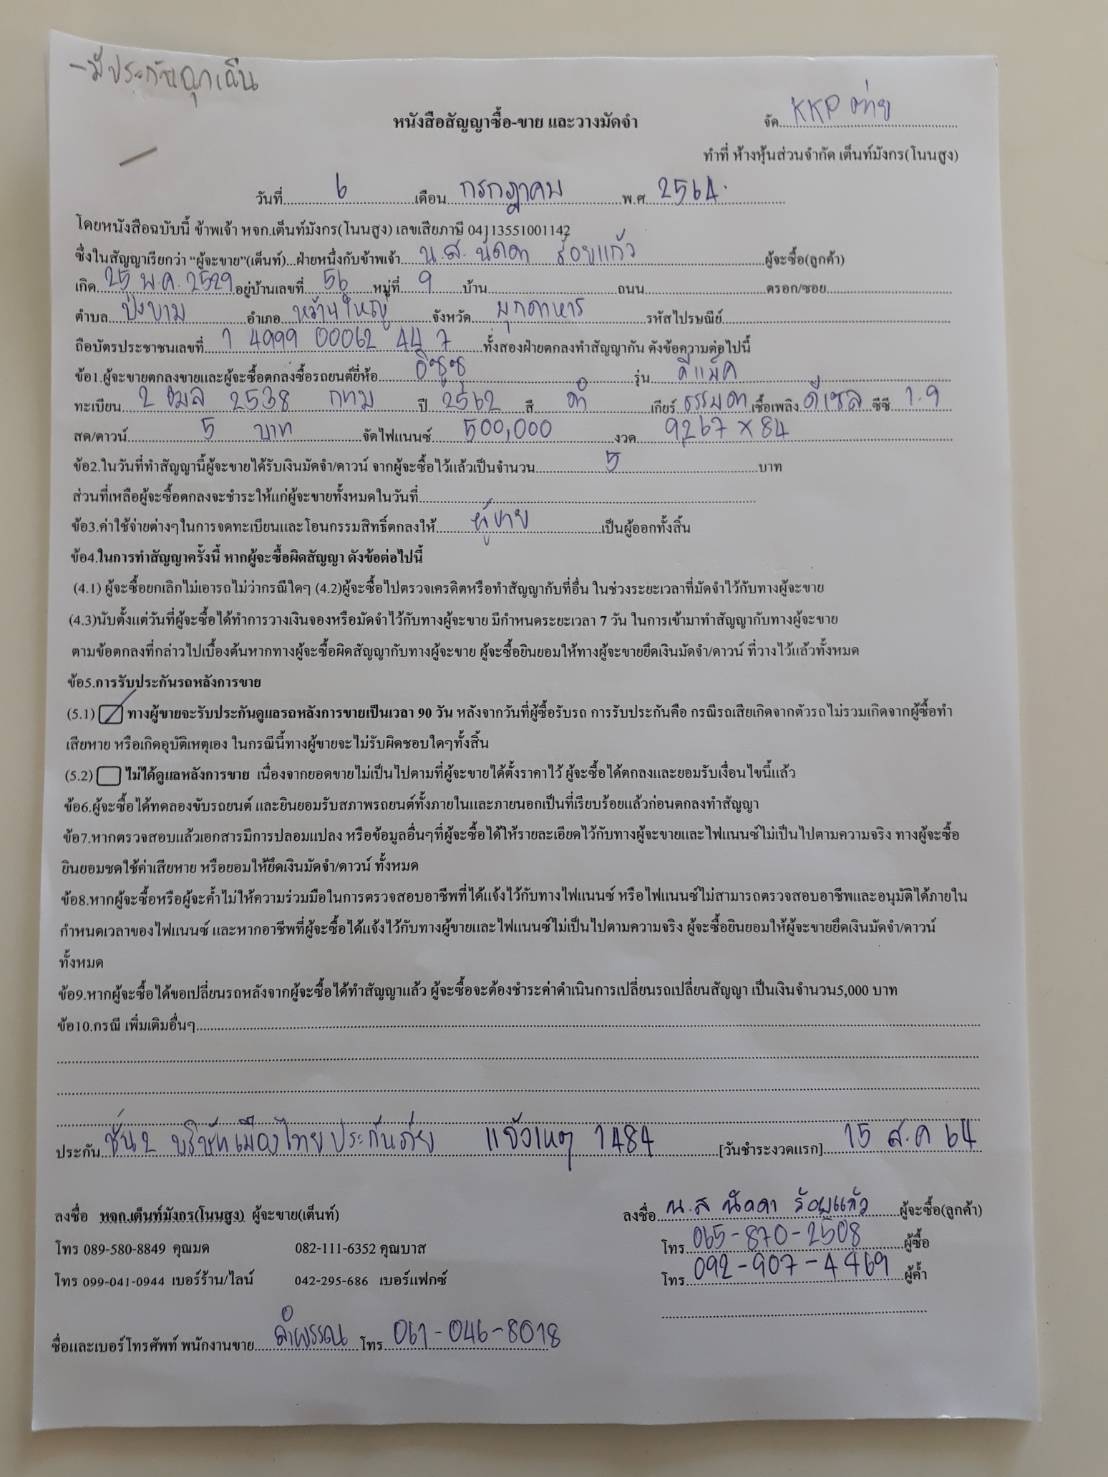 - มีประกันฉุกเฉิน
หนังสือสัญญาซื้อ-ขาย และวางมัดจำ
จัด KKP ต่าย
ทำที่ ห้างหุ้นส่วนจำกัด เต็นท์มังกร(โนนสูง)
วันที่ 6 เดือน กรกฎาคม พ.ศ. 2564.
โดยหนังสือฉบับนี้ ข้าพเจ้า หจก.เต็นท์มังกร(โนนสูง) เลขเสียภาษี 04113551001142
ซึ่งในสัญญาเรียกว่า "ผู้จะขาย"(เต็นท์)...ฝ่ายหนึ่งกับข้าพเจ้า น.ส. นัดดา ร้อยแก้ว ผู้จะซื้อ(ลูกค้า)
เกิด 25 พ.ค. 2529 อยู่บ้านเลขที่ 56 หมู่ที่ 9 บ้าน ถนน ตรอก/ซอย
ตำบล ป่งขาม อำเภอ หว้านใหญ่ จังหวัด มุกดาหาร รหัสไปรษณีย์
ถือบัตรประชาชนเลขที่ 1 4999 00062 44 7 ทั้งสองฝ่ายตกลงทำสัญญากัน ดังข้อความต่อไปนี้
ข้อ1.ผู้จะขายตกลงขายและผู้จะซื้อตกลงซื้อรถยนต์ยี่ห้อ อีซูซุ รุ่น ดีแม็ค
ทะเบียน 2 ฒล 2538 กทม ปี 2562 สี ดำ เกียร์ ธรรมดา เชื้อเพลิง ดีเซล ซีซี 1.9
สด/ดาวน์ 5 บาท จัดไฟแนนซ์ 500,000 งวด 9267 x 84
ข้อ2.ในวันที่ทำสัญญานี้ผู้จะขายได้รับเงินมัดจำ/ดาวน์ จากผู้จะซื้อไว้แล้วเป็นจำนวน 5 บาท
ส่วนที่เหลือผู้จะซื้อตกลงจะชำระให้แก่ผู้จะขายทั้งหมดในวันที่
ข้อ3.ค่าใช้จ่ายต่างๆในการจดทะเบียนและโอนกรรมสิทธิ์ตกลงให้ ผู้ขาย เป็นผู้ออกทั้งสิ้น
ข้อ4.ในการทำสัญญาครั้งนี้ หากผู้จะซื้อผิดสัญญา ดังข้อต่อไปนี้
(4.1) ผู้จะซื้อยกเลิกไม่เอารถไม่ว่ากรณีใดๆ (4.2)ผู้จะซื้อไปตรวจเครดิตหรือทำสัญญากับที่อื่น ในช่วงระยะเวลาที่มัดจำไว้กับทางผู้จะขาย
(4.3)นับตั้งแต่วันที่ผู้จะซื้อได้ทำการวางเงินจองหรือมัดจำไว้กับทางผู้จะขาย มีกำหนดระยะเวลา 7 วัน ในการเข้ามาทำสัญญากับทางผู้จะขาย
ตามข้อตกลงที่กล่าวไปเบื้องต้นหากทางผู้จะซื้อผิดสัญญากับทางผู้จะขาย ผู้จะซื้อยินยอมให้ทางผู้จะขายยึดเงินมัดจำ/ดาวน์ ที่วางไว้แล้วทั้งหมด
ข้อ5.การรับประกันรถหลังการขาย
(5.1) ทางผู้ขายจะรับประกันดูแลรถหลังการขายเป็นเวลา 90 วัน หลังจากวันที่ผู้ซื้อรับรถ การรับประกันคือ กรณีรถเสียเกิดจากตัวรถไม่รวมเกิดจากผู้ซื้อทำ
เสียหาย หรือเกิดอุบัติเหตุเอง ในกรณีนี้ทางผู้ขายจะไม่รับผิดชอบใดๆทั้งสิ้น
(5.2) ไม่ได้ดูแลหลังการขาย เนื่องจากยอดขายไม่เป็นไปตามที่ผู้จะขายได้ตั้งราคาไว้ ผู้จะซื้อได้ตกลงและยอมรับเงื่อนไขนี้แล้ว
ข้อ6.ผู้จะซื้อได้ทดลองขับรถยนต์ และยินยอมรับสภาพรถยนต์ทั้งภายในและภายนอกเป็นที่เรียบร้อยแล้วก่อนตกลงทำสัญญา
ข้อ7.หากตรวจสอบแล้วเอกสารมีการปลอมแปลง หรือข้อมูลอื่นๆที่ผู้จะซื้อได้ให้รายละเอียดไว้กับทางผู้จะขายและไฟแนนซ์ไม่เป็นไปตามความจริง ทางผู้จะซื้อ
ยินยอมชดใช้ค่าเสียหาย หรือยอมให้ยึดเงินมัดจำ/ดาวน์ ทั้งหมด
ข้อ8.หากผู้จะซื้อหรือผู้จะค้ำไม่ให้ความร่วมมือในการตรวจสอบอาชีพที่ได้แจ้งไว้กับทางไฟแนนซ์ หรือไฟแนนซ์ไม่สามารถตรวจสอบอาชีพและอนุมัติได้ภายใน
กำหนดเวลาของไฟแนนซ์ และหากอาชีพที่ผู้จะซื้อได้แจ้งไว้กับทางผู้ขายและไฟแนนซ์ไม่เป็นไปตามความจริง ผู้จะซื้อยินยอมให้ผู้จะขายยึดเงินมัดจำ/ดาวน์
ทั้งหมด
ข้อ9.หากผู้จะซื้อได้ขอเปลี่ยนรถหลังจากผู้จะซื้อได้ทำสัญญาแล้ว ผู้จะซื้อจะต้องชำระค่าดำเนินการเปลี่ยนรถเปลี่ยนสัญญา เป็นเงินจำนวน5,000 บาท
ข้อ10.กรณี เพิ่มเติมอื่นๆ
ประกัน ชั้น2 บริษัทเมืองไทยประกันภัย แจ้งเหตุ 1484 [วันชำระงวดแรก] 15 ส.ค 64
ลงชื่อ หจก.เต็นท์มังกร(โนนสูง) ผู้จะขาย(เต็นท์) ลงชื่อ น.ส นัดดา ร้อยแก้ว ผู้จะซื้อ(ลูกค้า)
โทร 089-580-8849 คุณมด 082-111-6352 คุณบาส โทร 065-870-2508 ผู้ซื้อ
โทร 099-041-0944 เบอร์ร้าน/ไลน์ 042-295-686 เบอร์แฟกซ์ โทร 092-907-4469 ผู้ค้ำ
ชื่อและเบอร์โทรศัพท์ พนักงานขาย ลำพรรณ โทร 061-046-8018